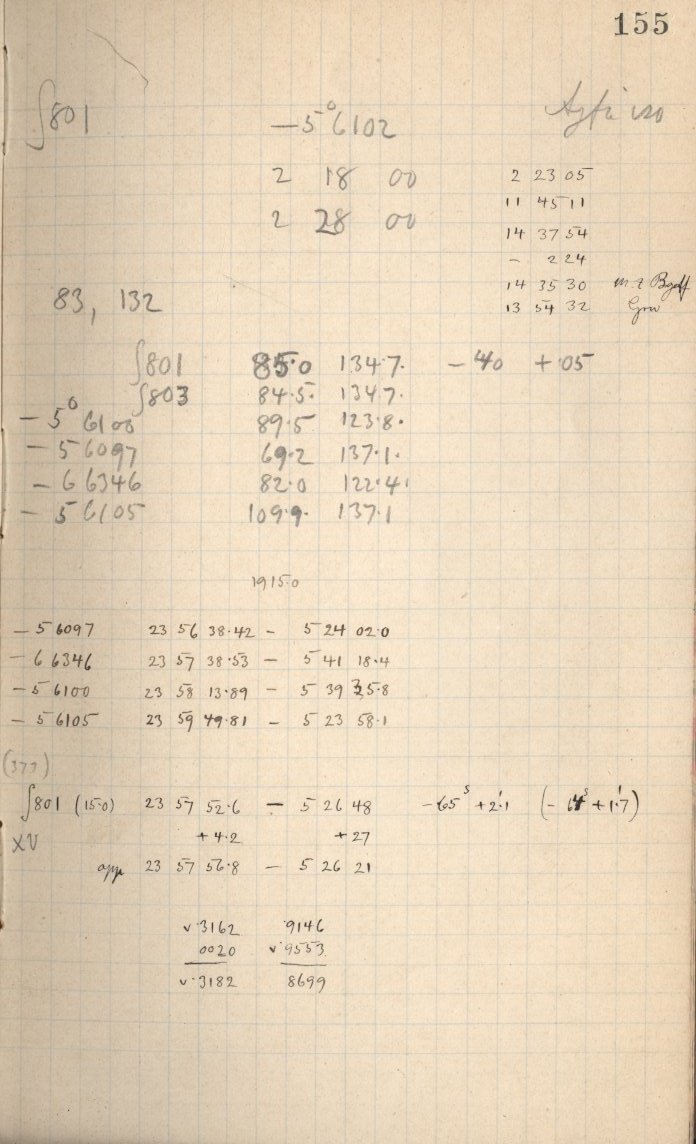 155
∫801 −5° 6102
2 18 00
2 28 00
2 23 05
11 45 11
14 37 54
− 2 24
14 35 30
13 54 32
83, 132
∫801 85.0 134.7. −40 +.05
∫803 84.5. 134.7.
−5° 6100 89.5 123.8.
−5 6097 69.2 137.1.
−6 6346 82.0 122.4.
−5 6105 109.9. 137.1
1915.0
−5 6097 23 56 38.42 − 5 24 02.0
−6 6346 23 57 38.53 − 5 41 18.4
−5 6100 23 58 13.89 − 5 39 25.8
−5 6105 23 59 49.81 − 5 23 58.1
(377)
∫801 (15.0) 23 57 52.6 − 5 26 48 −65ˢ +2.'1 (−64ˢ +1.'7)
XV +4.2 +27
app 23 57 56.8 − 5 26 21
v.3162 9146
0020 v.9553
v.3182 8699